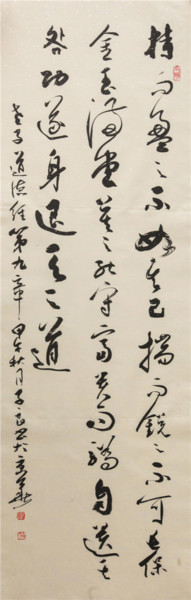 持而盈之不如其已揣而锐之不可长保
金玉满堂莫之能守富贵而骄自遗其
咎功遂身退天之道
老子道德经第九章甲午秋月